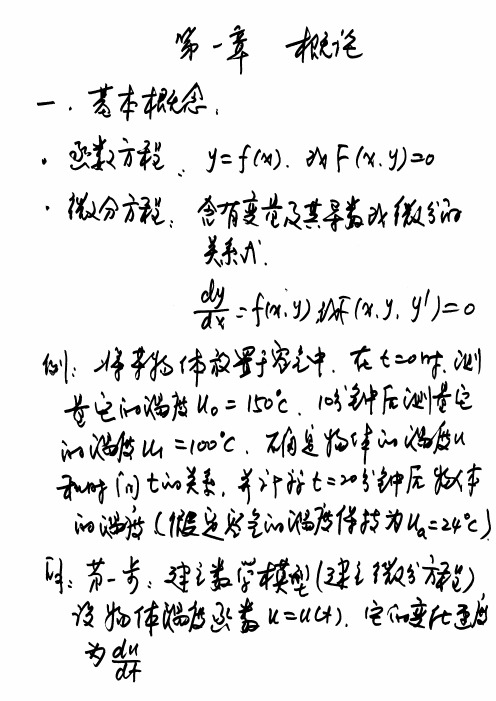 第一章 概论
一. 基本概念:
· 函数方程: y=f(x). 或F(x.y)=0
· 微分方程: 含有变量及其导数或微分的
关系式.
dy/dx = f(x.y) 或F(x.y.y')=0
例: 将某物体放置于空气中, 在t=0时, 测
量它的温度u₀=150°C. 10分钟后测量它
的温度u₁=100°C. 确定物体的温度u
和时间t的关系, 并计算t=20分钟后物体
的温度 (假定空气的温度保持为uₐ=24°C)
解: 第一步: 建立数学模型(建立微分方程)
设物体温度函数u=u(t). 它的变化速度
为 du/dt